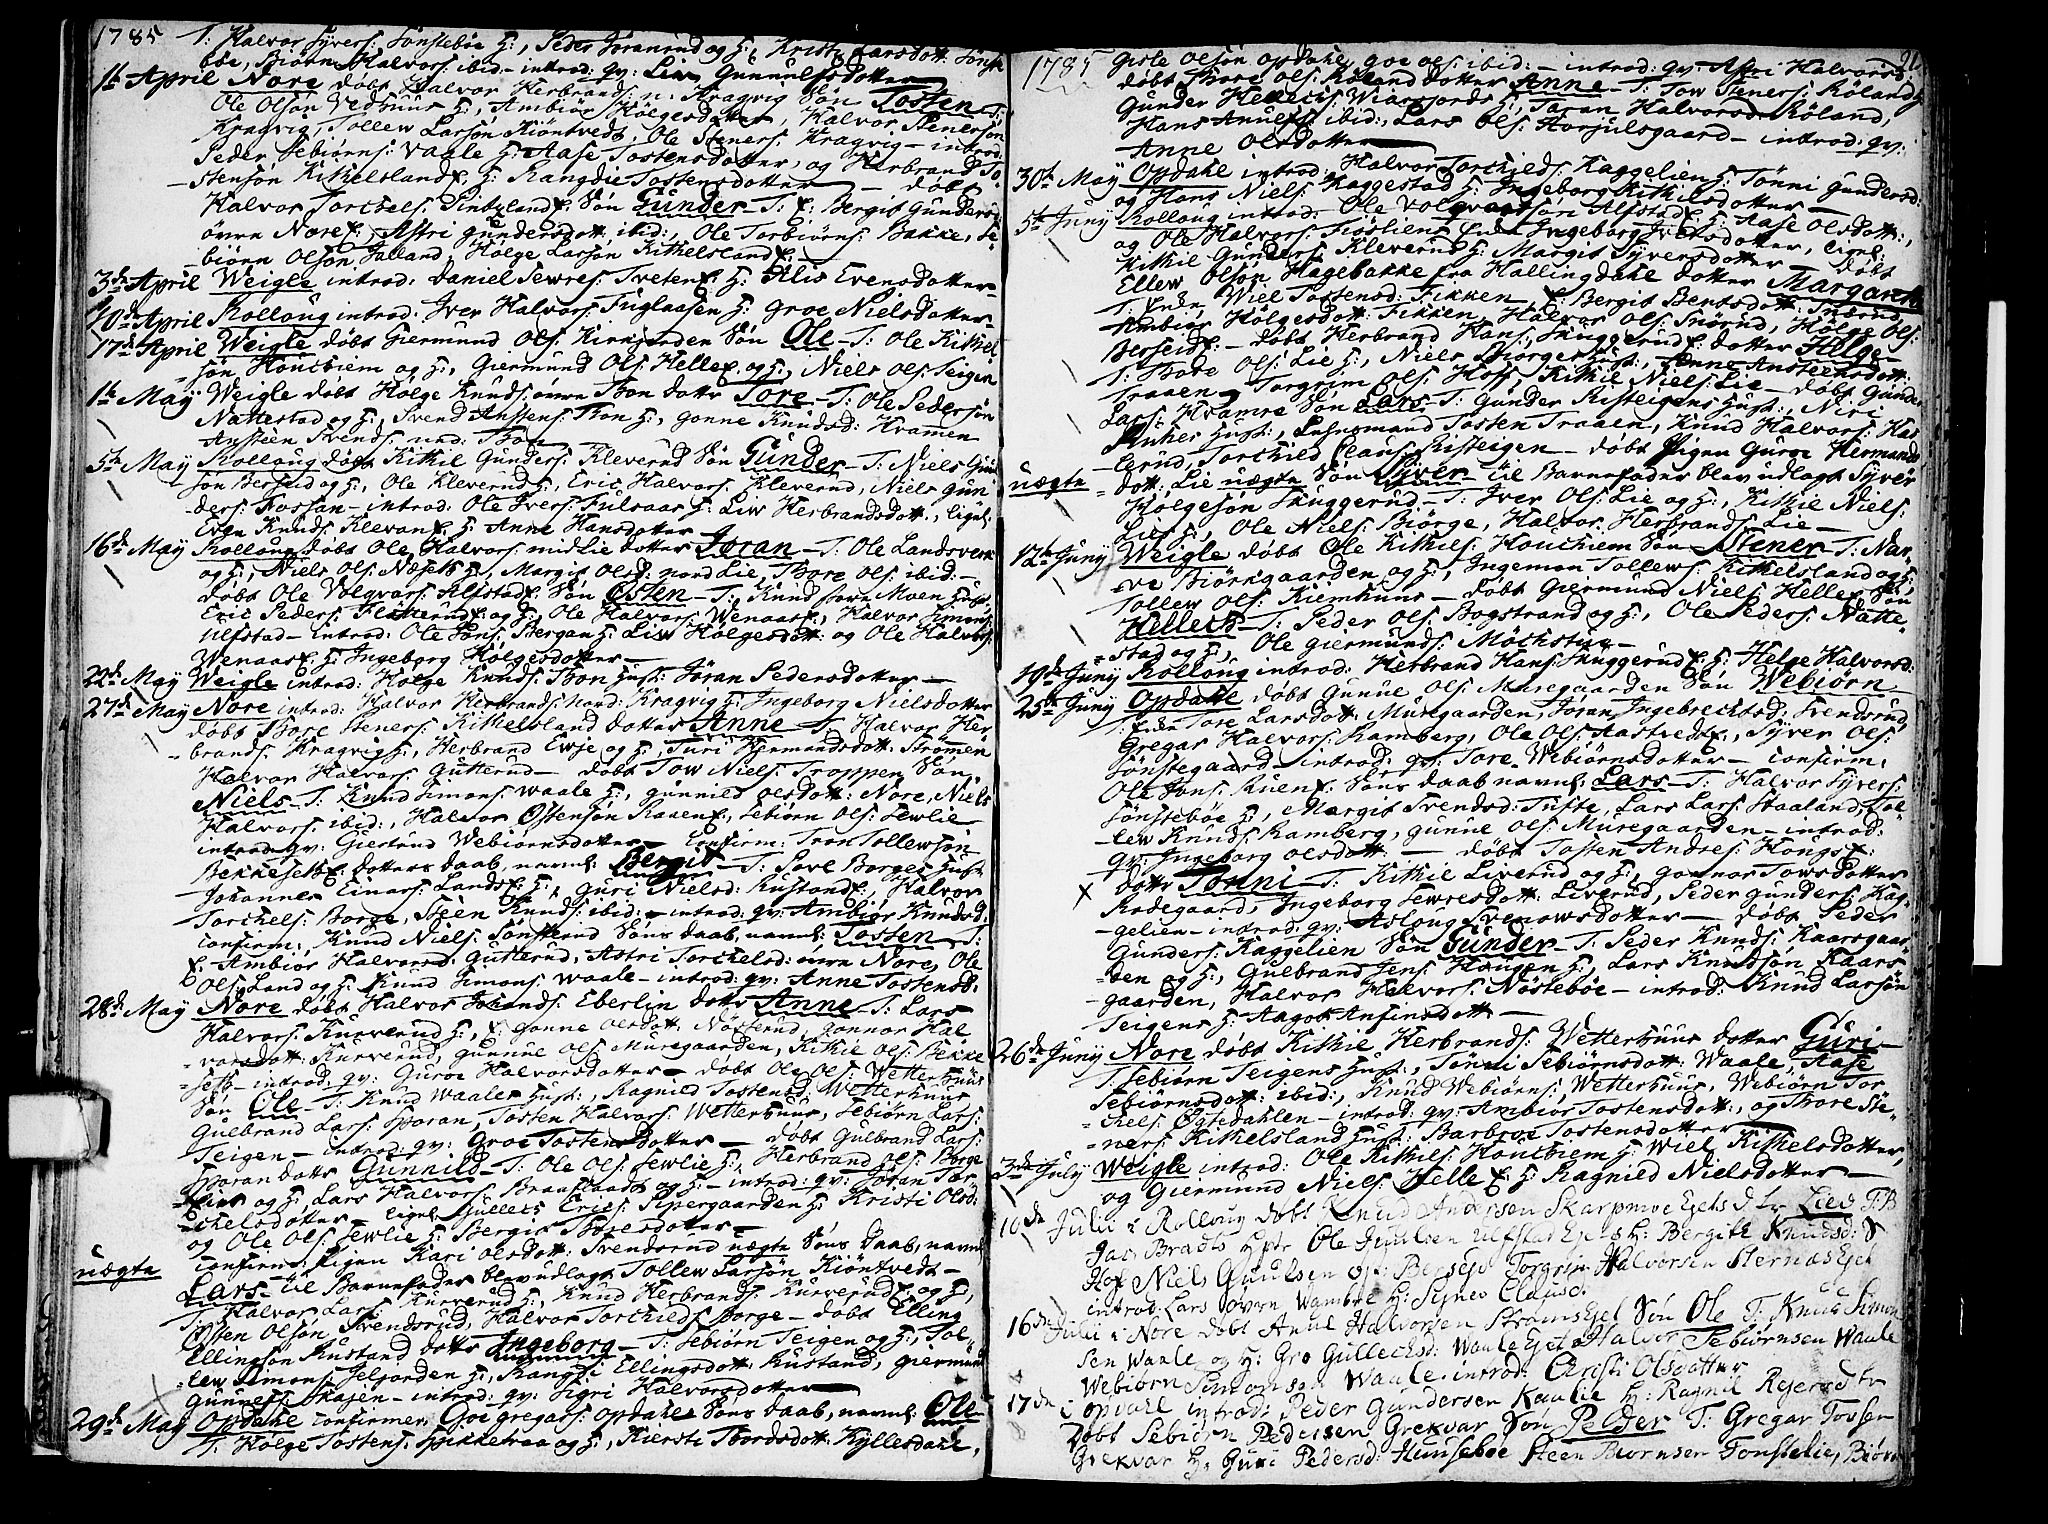 1785 T: Halvor Syvers: Sønstebøe H:, Peder Joranrud og H:, Kristi Larsdott: Sønste
bøe, Biørn Halvors: ibid:- introd: qv: Liv Gunnulfsdotter
1t April Nore døbt Halvor Herbrands: n: Kragvig Søn Tosten T:
Ole Olsøn Vedhuus H:, Ambiør Hølgesdotter, Halvor Stenersøn
Kragvig, Tollew Larsøn Kiøntvedt, Ole Steners: Kragvig - introd:
Peder Sebiørns: Vaale H: Aase Tostensdotter, og Herbrand To-
stensøn Kitkelsland E: H: Rangdie Tostensdotter - døbt
Halvor Torchels: Søn Gunder - T: E: Bergit Gundersd:
øvre Nore E:, Astri Gundersdott: ibid:, Ole Torbiørns: Bakke, Se-
biørn Olsøn Jalland, Hølge Larsøn Kitkelsland E: -
3de April Weigle introd: Daniel Sewres: Tveten E: H: Alis Evensdotter -
10de April Rolloug introd: Iver Halvors: Fuglaasen H: Groe Nielsdotter -
17de April Weigle døbt Giermund Ols: Kirkjorden Søn Ole - T: Ole Kitkel
søn Houchiem og H:, Giermund Ols: Helle E: og H:, Niels Ols: Teigen
1t May Weigle døbt Hølge Knuds: øvre Bon dotter Tore - T: Ole Pedersøn
Nattestad og H:, Svend Anstens: Bon H:, Gonne Knudsd: Kramen
Ansteen Svends: ned: Bon
5te May Rolloug døbt Kitkil Gunders: Kleverud Søn Gunder - T: Niels Gun
søn Berseid og H:, Ole Kleverud H:, Eric Halvors: Kleverud, Niels Gun
ders: Fossan - introd: Ole Ivers: Fulsaas H: Liw Herbrandsdott:, ligel:
Even Knuds: Klevan E: H: Anne Hansdotter
16de May Rolloug døbt Ole Halvors: midLie dotter Joran - T: Ole Landsverk
og H:, Niels Ols: Næset H:, Margit Olsd: nord Lie, Tore Ols: ibid: -
døbt Ole Volgvars: Alfstad E: Søn Østen - T: Knud store Moen Hust:
Eric Peders: Fløtterud E: og H:, Ole Halvors: Wenaas E:, Halvor Simons:
Ulfstad - introd: Ole Jons: Bergan H: Liw Hølgesdott: og Ole Halvors:
Wenaas E: H: Ingeborg Hølgesdotter -
22de May Weigle introd: Hølge Knuds: Bon Hust: Jøran Pedersdotter -
27de May Nore introd: Halvor Herbrands: nord: Kragvig H: Ingeborg Nielsdotter
døbt Tore Steners: Kitkelsland dotter Anne - T: Halvor Her-
brands: Kragvig H:, Herbrand Ewje og H:, Turi Hermandsdott: Strømen
Halvor Halvors: Gutterud - døbt Tow Niels: Troppen Søn
Niels - T: Knud Simons: Waale H:, Gunnild Olsdott: Nore, Niels
Halvors: ibid:, Halvor Østensøn Raaen E:, Sebiørn Ols: Sewlie
introd: qv: Giertrud Webiørnsdotter - Confirm: Tron Tollewsøn
Bekkeseth E: Dotters Daab, navnl: Bergit - T: Tore Borges Hust:
Johannes Einars: Lands E: H:, Guri Nielsd: Rustand E:, Halvor
Torchels: Borge, Steen Knuds: ibid: - introd: qv: Ambiør Knudsd:
Confirm: Knud Niels: Sønsterud Søns Daab, navnl: Tosten T:
E: Ambiør Halvorsd: Gutterud, Astri Torchelsd: øvre Nore, Ole
Ols: Land og H:, Knud Simons: Waale - introd: qv: Anne Tostensd:
28de May Nore døbt Halvor Erlands: Eberlin dotter Anne - T: Lars
Halvors: Kurverud H:, E: Gonne Olsdott: Nøsterud, Gonnor Hal
vorsdott: Kurverud, Gunnue Ols: Muregaarden, Kitkil Ols: Bekke
seth - introd: qv: Guroe Halvorsdotter - døbt Ole Ols: Wetterhuus
Søn Ole - T: Knud Waales Hust:, Ragnild Tostensd: Wetterhuus
Gulbrand Lars: Sporan, Tosten Halvors: Wetterhuus, Sebiørn Lars:
Teigen - introd: qv: Groe Tostensdotter - døbt Gulbrand Lars:
Sporan dotter Gunnild - T: Ole Ols: Sewlie H:, Herbrand Ols: Borge
Eier og H:, Lars Halvors: Braaflaadt og H: - introd: qv: Joran Tor
chelsdotter - ligel: Gullech Erics: Sporgaarden H: Kristi Olsd:
og Ole Ols: Sewlie H: Bergit Toresdotter -
uægte Confirm: Pigen Kari Olsdott: Svendsrud uægte Søns Daab, navnl:
Lars - til Barnefader blev udlagt Tollew Larsøn Kiøntvedt -
T: Halvor Lars: Kurverud H:, Knud Herbrands: Kurverud E: og H:,
Østen Olsøn Svendsrud, Halvor Torchilds: Borge - døbt Elling
Ellingsøn Rustand dotter Ingeborg - T: Sebiørn Teigen og H:, Tol-
lew Simons: Seljorden H:, Rangdi Ellingsdott: Rustand, Giermund
Gunnulfs: Skajen - introd: qv: Sigri Halvorsdotter
29de May Opdahl Confirmen: Goe Gregars: Opdahl Søns Daab, navnl: Ole
T: Hølge Tostens: Spikketraa og H:, Kiersti Tordsdott: Kyllesdahl,
1785 Gisle Olsøn Opdahl, Goe Ols: ibid: - introd: qv: Astri Halvorsd:
døbt Tore Ols: Røland dotter Anne - T: Tow Steners: Røland H:
Gunder Hellecks: Wiarfjords H:, Taran Halvorsd: Røland,
Hans Anuulfs: ibid:, Lars Ols: Horjulsgaard - introd: qv:
Anne Olsdotter
30te May Opdahl introd: Halvor Torchilds: Kaggelien H: Tønni Gundersd:
og Hans Niels: Kaggestad H: Ingeborg Kitkilsdotter -
5te Juny Rolloug introd: Ole Volgvardsøn Alfstad E: H: Aase Olsdott:,
og Ole Halvors: Fiøstiens Enke Ingeborg Iversdotter, ligel:
Kitkil Gunders: Kleverud H: Margit Syversdotter - døbt
Ellew Olsøn Hagebakke fra Hallingdahl dotter Margareth
T: Enke Wiel Tostensd: Fikken, E: Bergit Bentsdott: Snørud,
Ambiør Hølgesdott: Fikken, Halvor Ols: Snørud, Hølge Ols:
Berseid E: - døbt Herbrand Hans: Skuggerud E: dotter Helge -
T: Tore Ols: Lie H:, Niels Biørges Hust:, Anne Ansteensdott:
Traaen, Torgrim Ols: Hoff, Kitkil Niels: Lie - døbt Gunder
Lars: Kramre Søn Lars - T: Gunder Risteigens Hust:, Niri
Hust:, Lensmand Tosten Traaen, Knud Halvors: Hal
lerud, Torchild Clavs: Risteigen - døbt Pigen Guroe Hermands
uægte dott: Lie uægte Søn Syver - til Barnefader blev udlagt Syver
Hølgesøn Skuggerud - T: Iver Ols: Lie og H:, Kitkil Niels:
Lie H:, Ole Niels: Biørge, Halvor Herbrands: Lie -
12te Juny Weigle døbt Ole Kitkils: Houchiem Søn - Stener - T: Nar-
ve Biørngaarden og H:, Ingeman Tollews: Kitkelsland og H:,
Tollew Ols: Kiemhuus - døbt Giermund Niels: Helle E: Søn
Helleck - T: Peder Ols: Bogstrand og H:, Ole Peders: Natte-
stad og H:, Ole Giermunds: Møchstue -
19de Juny Rolloug introd: Herbrand Hans: Skuggerud E: H: Helge Halvorsd:
25te Juny Opdahl døbt Gunue Ols: Muregaarden Søn Webiørn
T: Enke Tore Larsdott: Muregaarden, Joran Ingebrechtsd: Svendsrud,
Gregar Halvors: Ramberg, Ole Ols: Aastved E:, Syver Ols:
Sønstegaard - introd: qv: Tore Webiørnsdotter - confirm:
Ole Jons: Ruen E: Søns Daab navnl: Lars - T: Halvor Syvers:
Sønstebøe H:, Margit Svendsd: Tufte, Lars Lars: Staaland, Tol-
lew Knuds: Ramberg, Gunue Ols: Muregaarden - introd:
qv: Ingeborg Olsdott: - døbt Tosten Andres: Hougs E:
dotter Tønni - T: Kitkil Liverud og H:, Gonnor Towsdotter
Rodegaard, Ingeborg Sewresdott: Liverud, Peder Gunders: Kag-
gelien - introd: qv: Aslong Svenowsdotter - døbt Peder
Gunders: Kaggelien Søn Gunder - T: Peder Knuds: Kaarsgaar-
den og H:, Gulbrand Jens: Hougen H:, Lars Knudsøn Kaars-
gaarden, Halvor Halvors: Nøstebøe - introd: Knud Larsøn
Teigens H: Aagot Anfinsdott: -
26de Juny Nore døbt Kitkil Herbrands: Wetterhuus dotter Guri -
T: Sebiørn Teigens Hust:, Tønni Sebiørnsdott: Waale, Aase
Sebiørnsdott: ibid:, Knud Webiørns: Wetterhuus, Webiørn Tor-
chels: Øgtedahlen - introd: qv: Ambiør Tostensdott:, og Thore Ste-
ners: Kitkelsland Hust: Barbroe Tostensdotter
3de July Weigle introd: Ole Kitkils: Houchiem H: Wiel Kitkelsdotter,
og Giermund Niels: Helle E: H: Ragnild Nielsdotter -
10de Julii i Rolloug døbt Knud Andersen Skarpmoe Ejets D tr Lied T: B
Jac: Bradts Hstr Ole Juulsen Ulfstad Ejets H: Bergith Knudsd: S
Hof Niels Guulsen og: Berseje Torgrim Halvorsen Sternæs Ejet
introd: Lars øvre Wambre H: Signe Clausd:
16de Julii i Nore døbt Anul Halvorsen Strøms Ejet Søn Ole T: Knud Simon
sen Waale og H: Gro Gullechsd: Waale Ejet Halvor Sebiørnsen Waale
Webiørn Simonsen Waale introd: Christi Olsdatter
17de i Opdahl introd: Peder Gundersen Kaalie H: Ragnil Rejersdtr
Døbt Sebiørn Pedersen Grekvar Søn Peder T: Gregar Tossen
Grekvar H: Guri Pedersd: Huuseboe Steen Biørnsen Tonstelie, Biørn